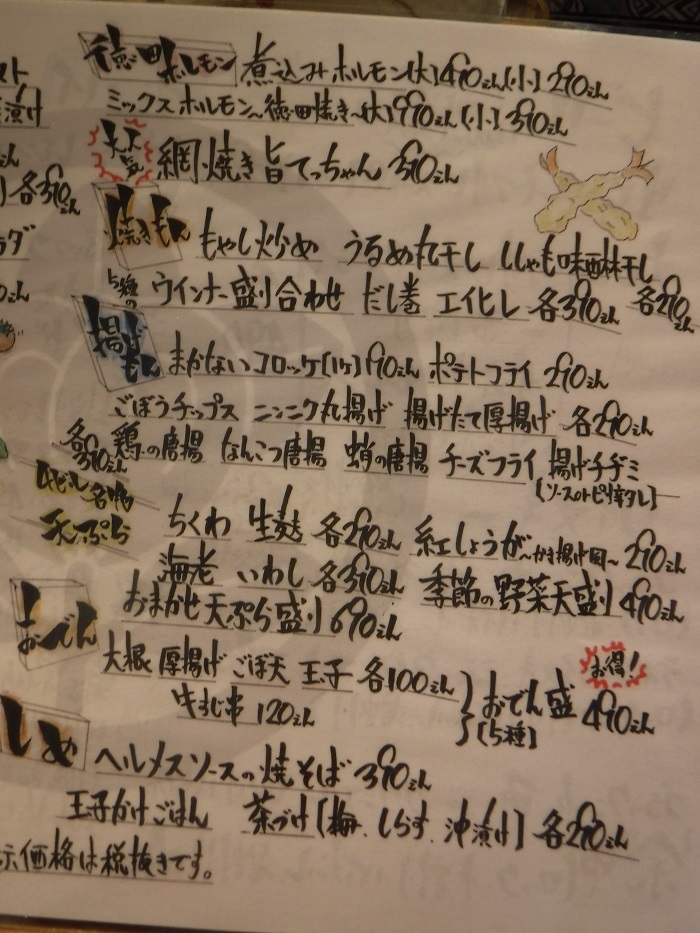 徳田ホルモン 煮込みホルモン(大)490えん(小)290えん
ミックスホルモン〜徳田焼き〜(大)990えん(小)390えん
大人気 網焼き旨てっちゃん 390えん
焼きもん もやし炒め うるめ丸干し ししゃも味醂干し
5種の ウインナー盛り合わせ だし巻 エイヒレ 各390えん 各290えん
揚げもん まかないコロッケ(1ヶ)190えん ポテトフライ 290えん
ごぼうチップス ニンニク丸揚げ 揚げたて厚揚げ 各290えん
各390えん 鶏の唐揚 なんこつ唐揚 蛸の唐揚 チーズフライ 揚げチヂミ
(ソースのピリ辛タレ)
名物
天ぷら ちくわ 生麩 各290えん 紅しょうが〜かき揚げ風〜 290えん
海老 いわし 各390えん 季節の野菜天盛り 490えん
おまかせ天ぷら盛り 690えん
おでん 大根 厚揚げ ごぼ天 玉子 各100えん
牛すじ串 120えん
おでん盛(5種) 490えん お得!
しめ ヘルメスソースの焼そば 390えん
玉子かけごはん 茶づけ(梅、しらす、沖漬け) 各290えん
示価格は税抜きです。
スト
漬け
えん
り 各390えん
ラダ
0えん